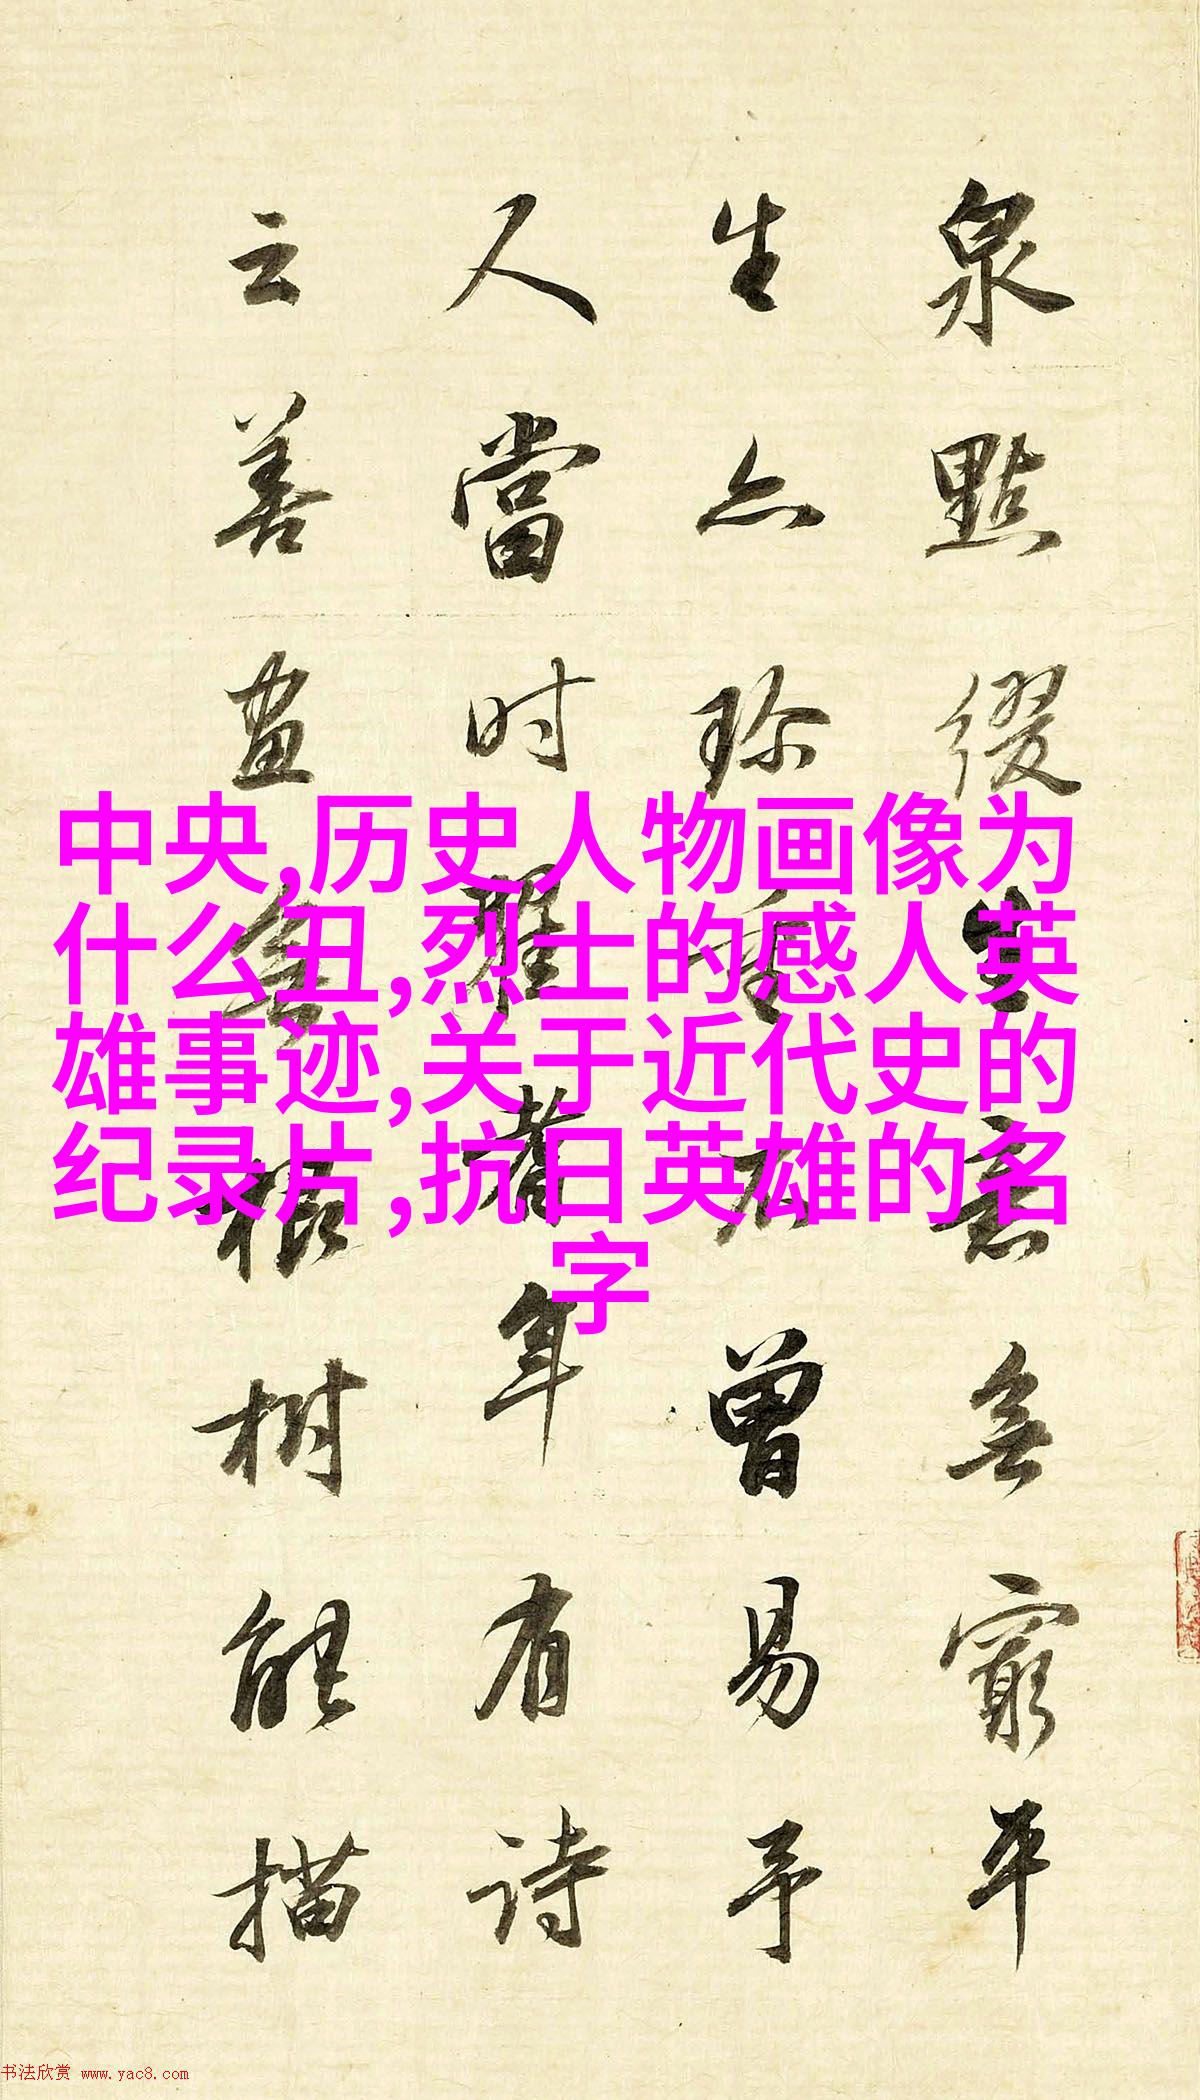 泉點綴生意無窮平
生亦珍重不曾易予
人當时耆年有诗
云善畫無根树能描
中央,历史人物画像为
什么丑,烈士的感人英
雄事迹,关于近代史的
纪录片,抗日英雄的名
字
书法欣赏 www.yac8.com